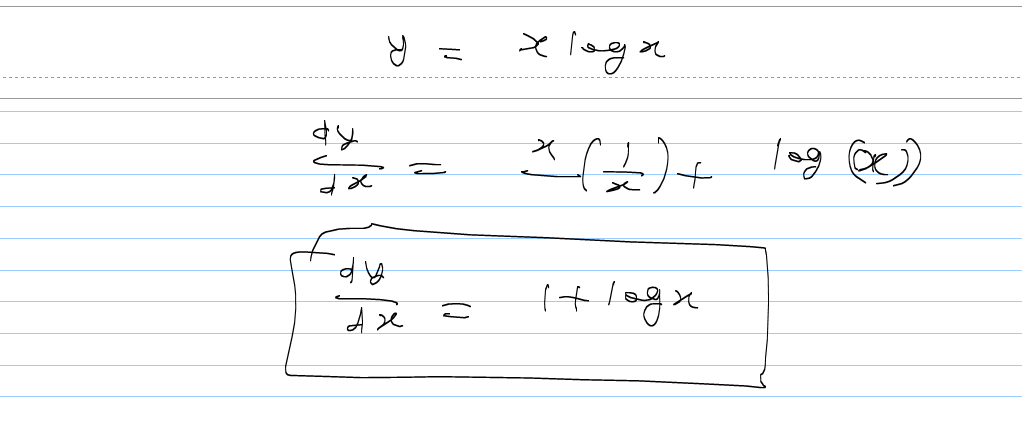 y = x log x
dy/dx = x (1/x) + log (x)
dy/dx = 1 + log x